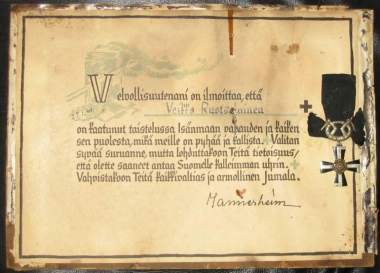 Velvollisuutenani on ilmoittaa, että
Veikko
on kaatunut taistelussa Isänmaan vapauden ja kaiken
sen puolesta, mikä meille on pyhää ja kallista. Valitan
syvää suruanne, mutta lohduttakoon Teitä tietoisuus,
että olette saaneet antaa Suomelle kalleimman uhrin.
Vahvistakoon Teitä kaikkivaltias ja armollinen Jumala.
Mannerheim